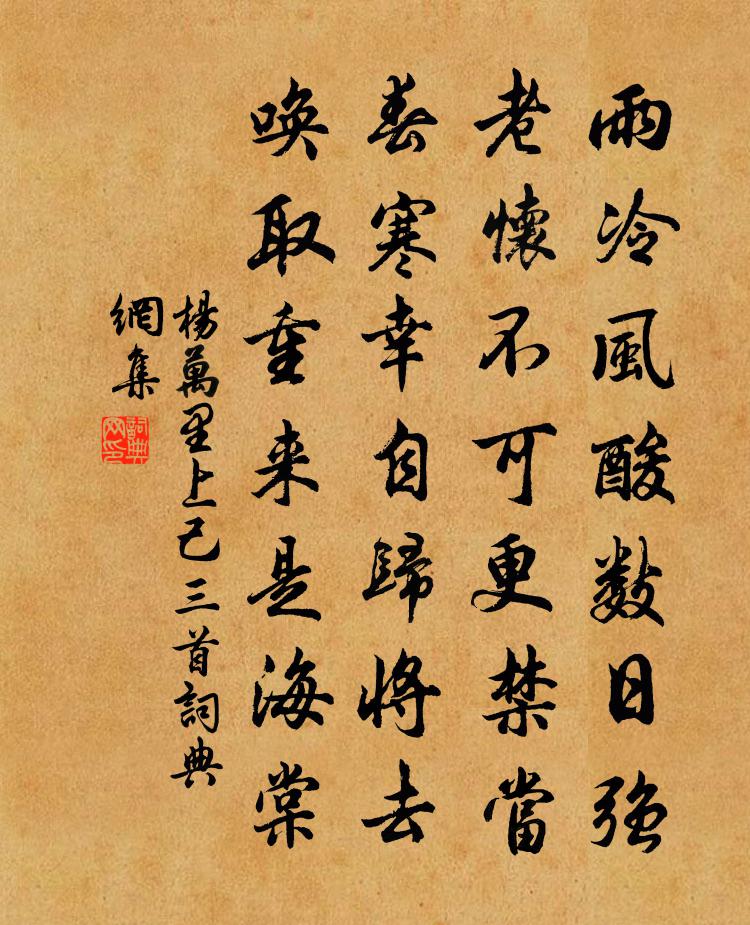 雨冷風酸數日強
老懷不可更禁當
春寒幸自歸將去
喚取重来是海棠
楊萬里上己三首詞典
網集
詞典
网印